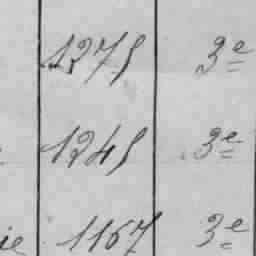 1275 3e
1245 3e
ie 1167 3e